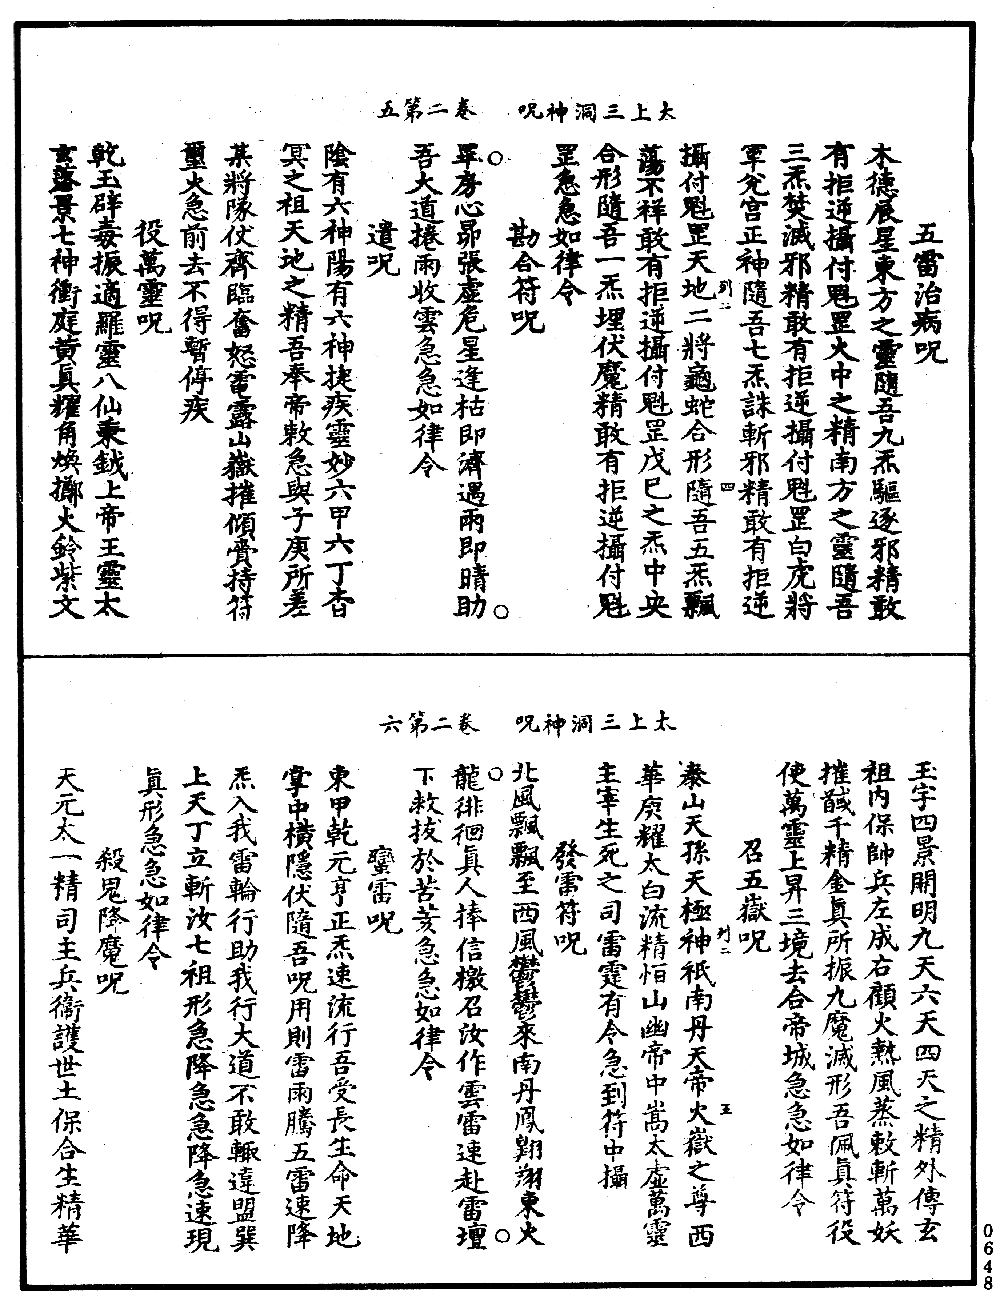 太上三洞神呪　卷二第五
五雷治病呪
木德辰星東方之靈隨吾九炁驅逐邪精敢
有拒逆攝付魁罡火中之精南方之靈隨吾
三炁焚滅邪精敢有拒逆攝付魁罡白虎將
軍兊宮正神隨吾七炁誅斬邪精敢有拒逆
列二
四
攝付魁罡天地二將龜蛇合形隨吾五炁飄
蕩不祥敢有拒逆攝付魁罡戊巳之炁中央
合形隨吾一炁埋伏魔精敢有拒逆攝付魁
罡急急如律令
勘合符呪
○畢房心昴張虛危星逢枯即濟遇雨即晴助○
吾大道捲雨收雲急急如律令
遣呪
陰有六神陽有六神捷疾靈妙六甲六丁杳
冥之祖天地之精吾奉帝敕急與子庚所差
某將隊仗齊臨奮怒雷露山嶽摧傾賫持符
璽火急前去不得暫停疾
役萬靈呪
乾玉辟毒振適羅靈八仙秉鉞上帝王靈太
玄落景七神衝庭黄眞耀角煥擲火鈴紫文
太上三洞神呪　卷二第六
玉字四景開明九天六天四天之精外傳玄
祖内保帥兵左成右顧火熱風蒸敕斬萬妖
摧馘千精金眞所振九魔滅形吾佩眞符役
使萬靈上昇三境去合帝城急急如律令
召五嶽呪
列二
五
泰山天孫天極神祇南丹天帝火嶽之尊西
華庚耀太白流精恒山幽帝中嵩太虚萬靈
主宰生死之司雷霆有令急到符中攝
發雷符呪
北風飄飄至西風鬱鬱來南丹鳳翺翔東火
○龍徘徊眞人捧信檄召汝作雲雷速赴雷壇○
下救拔於苦芠急急如律令
蠻雷呪
東甲乾元亨正炁速流行吾受長生命天地
掌中橫隱伏隨吾呪用則雷雨騰五雷速降
炁入我雷輪行助我行大道不敢輙違盟巽
上天丁立斬汝七祖形急降急急降急速現
眞形急急如律令
殺鬼降魔呪
天元太一精司主兵衞護世土保合生精華
0648